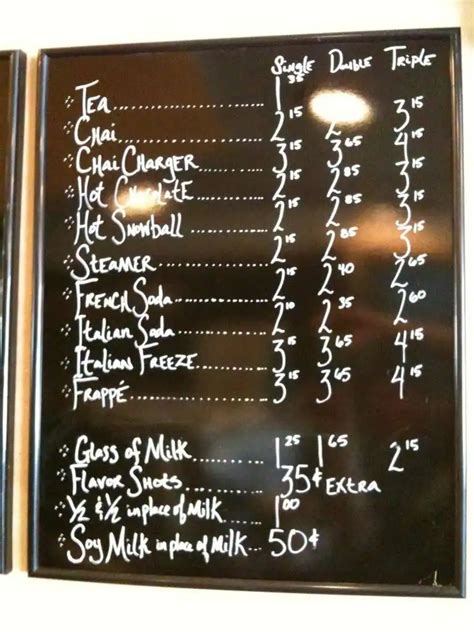 Single Double Triple
Tea 1.35
Chai 2.15 2 3.15
Chai Charger 3.15 3.65 4.15
Hot Chocolate 2.15 2.85 3.15
Hot Snowball 2.15 2.85 3.15
Steamer 2.15 2.85 3.15
French Soda 2.15 2.40 2.65
Italian Soda 2.10 2.35 2.60
Italian Freeze 3.15 3.65 4.15
Frappé 3.15 3.65 4.15
Glass of Milk 1.25 1.65 2.15
Flavor Shots 35¢ Extra
½ & ½ in place of Milk 1.00
Soy Milk in place of Milk 50¢